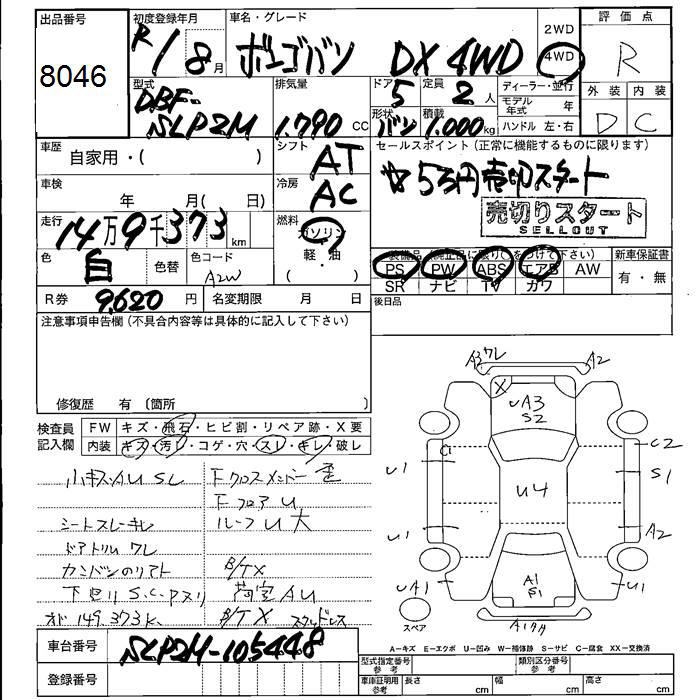 出品番号 8046
初度登録年月 R1 8月
車名・グレード ボンゴバン DX 4WD
2WD
4WD
評価点 R
外装 D 内装 C
型式 DBF-SLP2M
排気量 1.790 cc
ドア 5
定員 2人
形状 バン
積載 1.000kg
ディーラー・並行
モデル年式 年
ハンドル 左・右
車歴 自家用・( )
シフト AT
セールスポイント(正常に機能するものに限ります)
☆5万円売切スタート
売切りスタート
SELLOUT
車検 年 月( 日)
冷房 AC
走行 14万9千373km
燃料 ガソリン・軽・油
色 白 色替
色コード A2W
装備品(純正品に限り○をつけて下さい)
PS PW ABS エアB AW
SR ナビ TV カワ
新車保証書
有・無
R券 9,620円
名変期限 月 日
後日品
注意事項申告欄(不具合内容等は具体的に記入して下さい)
修復歴 有 〔箇所 〕
検査員記入欄
FW キズ・飛石・ヒビ割・リペア跡・X要
内装 キズ・汚レ・コゲ・穴・スレ・キレ・破レ
小キズAU SL
Fクロスメンバー歪
Fフロア U
シートスレ・キレ
ルーフ U 大
ドアトリム ワレ
カンバンのリアト B/TX
下廻り S.C.Pヌリ 荷室 AU
オド 149.373K. B/TX スタッドレス
A3ワレ
A2
X
UA3
S2
C1
C2
U1
S1
U4
A2
UA1
A1
S1
U1
スペア
A1ワレ
車台番号 SLP2M-105448
登録番号
A-キズ E-エクボ U-凹み W-補修跡 S-サビ C-腐食 XX-交換済
型式指定番号 参考
類別区分番号 参考
車庫証明用 参考
長さ cm
幅 cm
高さ cm